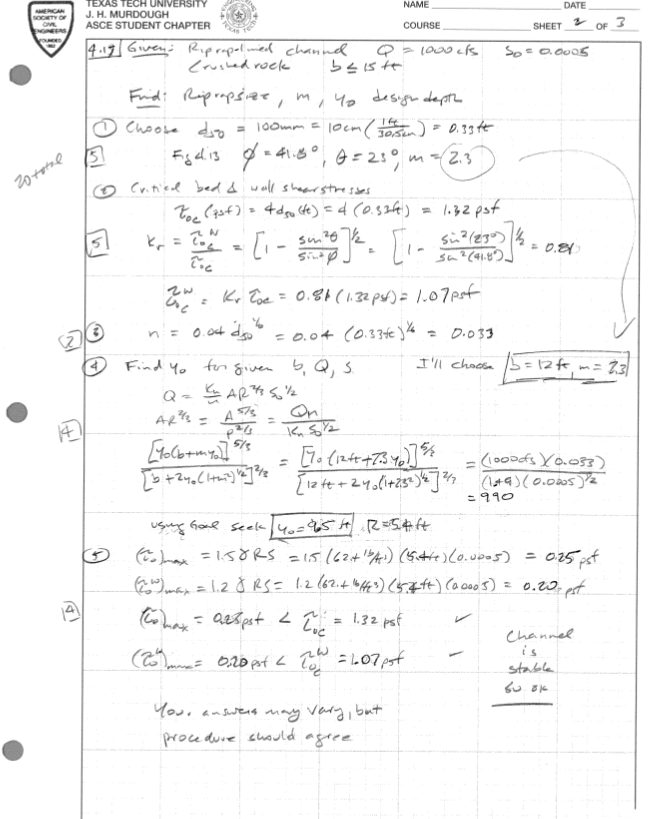 AMERICAN
SOCIETY OF
CIVIL
ENGINEERS
FOUNDED
1852
TEXAS TECH UNIVERSITY
J. H. MURDOUGH
ASCE STUDENT CHAPTER
NAME
DATE
COURSE
SHEET 2 OF 3
4.19 Given: Riprap lined channel Q = 1000 cfs S₀ = 0.0005
Crushed rock b ≤ 15 ft
Find: Riprap size, m, y₀ design depth
① Choose d₅₀ = 100mm = 10cm (1ft/30.5cm) = 0.33 ft
20 total
5
Fig 4.13 φ = 41.8°, θ = 23°, m = 2.3
② Critical bed & wall shear stresses
τ₀c (psf) = 4 d₅₀ (ft) = 4 (0.33ft) = 1.32 psf
5
Kr = τ₀cʷ/τ₀c = [1 - sin²θ/sin²φ]^½ = [1 - sin²(23°)/sin²(41.8°)]^½ = 0.81
τ₀cʷ = Kr τ₀c = 0.81 (1.32 psf) = 1.07 psf
2
③ n = 0.04 d₅₀^⅙ = 0.04 (0.33ft)^⅙ = 0.033
④ Find y₀ for given b, Q, S. I'll choose b = 12 ft, m = 2.3
Q = Kn/n AR^2/3 S₀^1/2
AR^2/3 = A^5/3/P^2/3 = Qn/Kn S₀^1/2
14
[y₀(b+my₀)]^5/3/[b+2y₀(1+m²)^½]^2/3 = [y₀(12ft+2.3y₀)]^5/3/[12ft+2y₀(1+2.3²)^½]^2/3 = (1000cfs)(0.033)/(1.49)(0.0005)^½
= 990
using Goal Seek y₀ = 9.5 ft R = 5.4 ft
⑤ (τ₀)max = 1.5 γ RS = 1.5 (62.4 lb/ft³) (5.4ft) (0.0005) = 0.25 psf
(τ₀ʷ)max = 1.2 γ RS = 1.2 (62.4 lb/ft³) (5.4ft) (0.0005) = 0.20 psf
14
(τ₀)max = 0.25 psf < τ₀c = 1.32 psf ✓
(τ₀ʷ)max = 0.20 psf < τ₀cʷ = 1.07 psf ✓
Channel
is
stable
so ok
Your answers may vary, but
procedure should agree